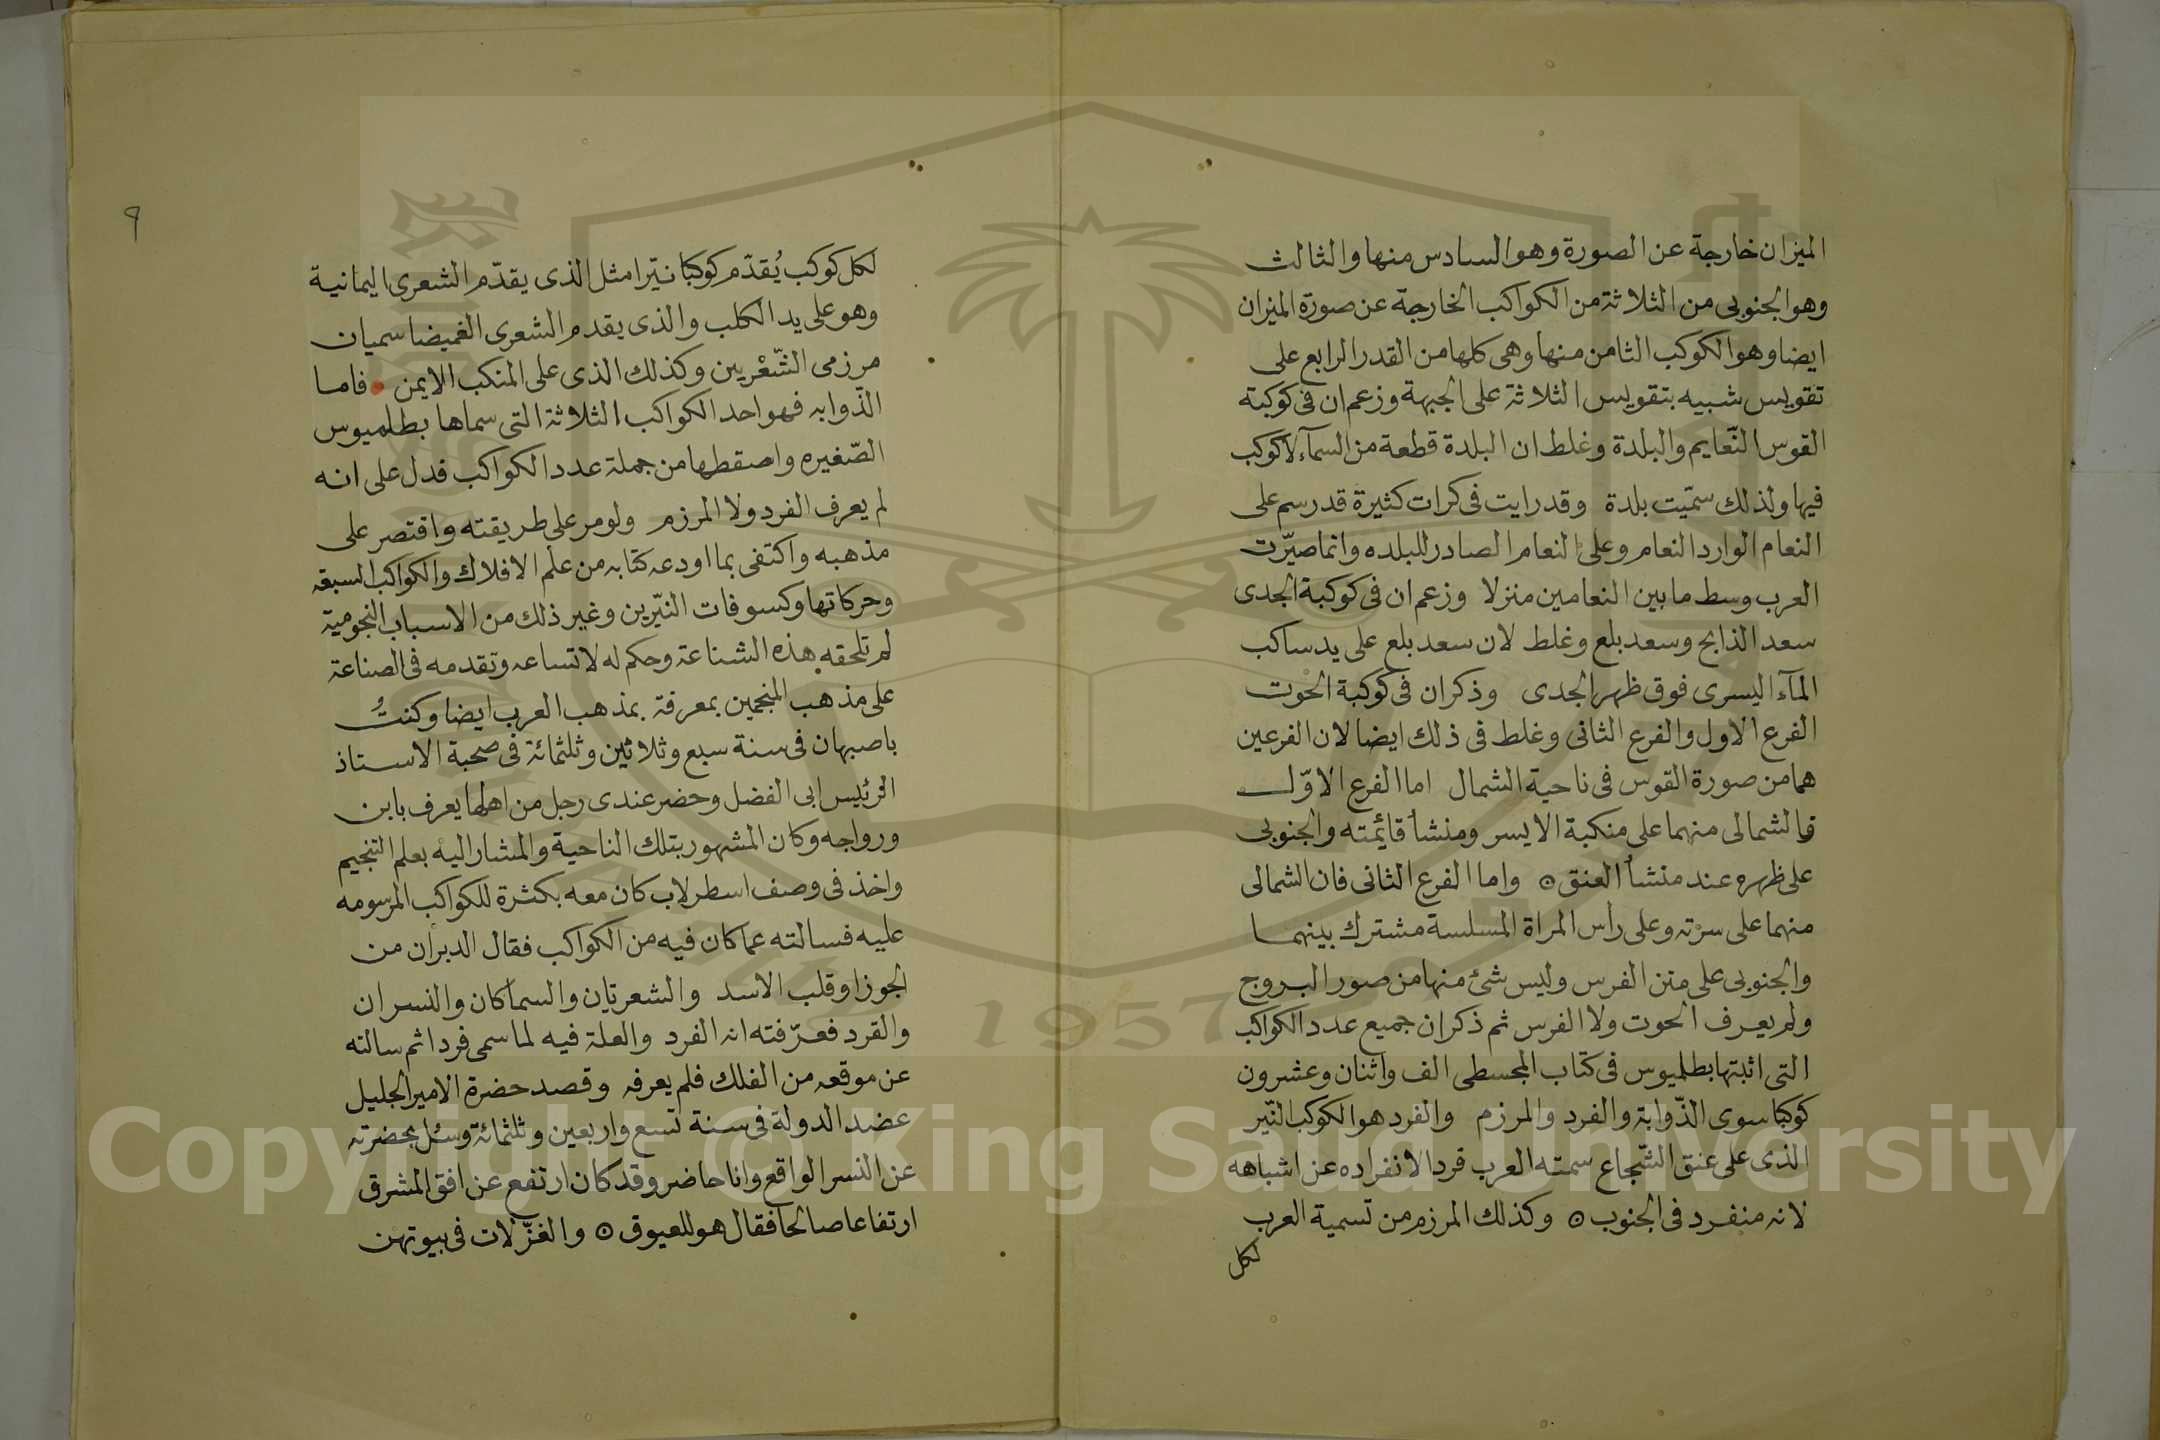 الميزان خارجة عن الصورة وهو السادس منها والثالث
وهو الجنوبى من الثلاثة من الكواكب الخارجة عن صورة الميزان
ايضا وهو الكوكب الثامن منها وهى كلها من القدر الرابع على
تقويس شبيه بتقويس الثلاثة على الجبهة وزعم ان فى كوكبة
القوس النّعايم والبلدة وغلط ان البلدة قطعة من السمآء لا كوكب
فيها ولذلك سمّيت بلدة وقد رايت فى كرات كثيرة قد رسم على
النعام الوارد النعام وعلى النعام الصادر للبلده وانما صيّرت
العرب وسط ما بين النعامين منزلا وزعم ان فى كوكبة الجدى
سعد الذابح وسعد بلع وغلط لان سعد بلع على يد ساكب
المآء اليسرى فوق ظهر الجدى وذكر ان فى كوكبة الحوت
الفرع الاول والفرع الثانى وغلط فى ذلك ايضا لان الفرعين
هما من صورة القوس فى ناحية الشمال اما الفرع الاوّل
فالشمالى منهما على منكبة الايسر ومنشأ قائمته والجنوبى
على ظهره عند منشأ العنق ۞ واما الفرع الثانى فان الشمالى
منهما على سرّته وعلى رأس المراة المسلسة مشترك بينهما
والجنوبى على متن الفرس وليس شئ منها من صور البروج
ولم يعرف الحوت ولا الفرس ثم ذكر ان جميع عدد الكواكب
التى اثبتها بطلميوس فى كتاب المجسطى الف واثنان وعشرون
كوكبا سوى الذّوابة والفرد والمرزم والفرد هو الكوكب النّير
الذى على عنق الشّجاع سمته العرب فردا لانفراده عن اشباهه
لانه منفرد فى الجنوب ۞ وكذلك المرزم من تسمية العرب
لكل
٩
لكل كوكب يُقدّم كوكبا نيّرا مثل الذى يقدّم الشعرى اليمانية
وهو على يد الكلب والذى يقدم الشعرى الغميضا سميان
مرزمى الشّعْريين وكذلك الذى على المنكب الايمن فاما
الذّوابه فهو احد الكواكب الثلاثة التى سماها بطلميوس
الصّغيره واسقطها من جملة عدد الكواكب فدل على انه
لم يعرف الفرد ولا المرزم ولو مر على طريقته واقتصر على
مذهبه واكتفى بما اودعه كتابه من علم الافلاك والكواكب السبعه
وحركاتها وكسوفات النيّرين وغير ذلك من الاسباب النجومية
لم تلحقه هذه الشناعة وحكم له لاتساعه وتقدمه فى الصناعة
على مذهب المنجمين بمعرفة بمذهب العرب ايضا وكنتُ
باصبهان فى سنة سبع وثلاثين وثلثمائة فى صحبة الاستاذ
الرئيس ابى الفضل وحضر عندى رجل من اهلها يعرف بابن
ورواجه وكان المشهور بتلك الناحية والمشار اليه بعلم التنجيم
واخذ فى وصف اسطرلاب كان معه بكثرة للكواكب المرسومه
عليه فسالته عما كان فيه من الكواكب فقال الدبران من
الجوزا وقلب الاسد والشعرتان والسماكان والنسران
والقرد فعرّفته انه الفرد والعلة فيه لما سمى فردا ثم سالته
عن موقعه من الفلك فلم يعرفه وقصد حضرة الامير الجليل
عضد الدولة فى سنة تسع واربعين وثلثمائة وسئل بحضرته
عن النسر الواقع وانا حاضر وقد كان ارتفع عن افق المشرق
ارتفاعا صالحا فقال هو للعيوق ۞ والغزّلات فى بيوتهن
Copyright © King Saud University
1957